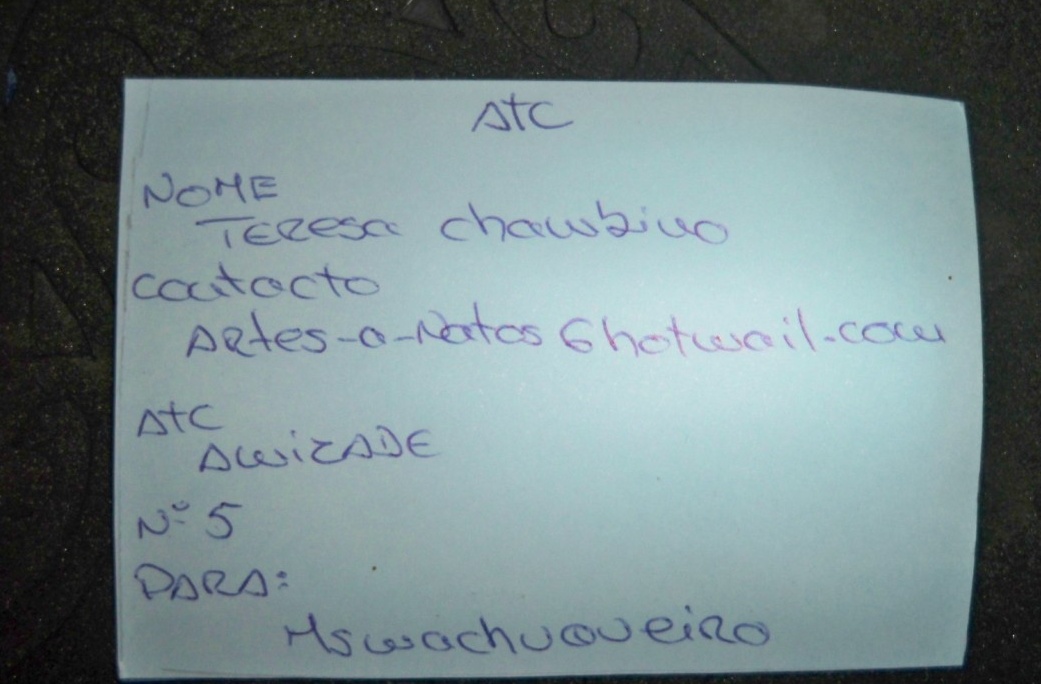 ATC
NOME
TERESA chambino
contacto
ARtes-a-Natas@hotmail.com
ATC
AmiZADE
Nº 5
PARA: